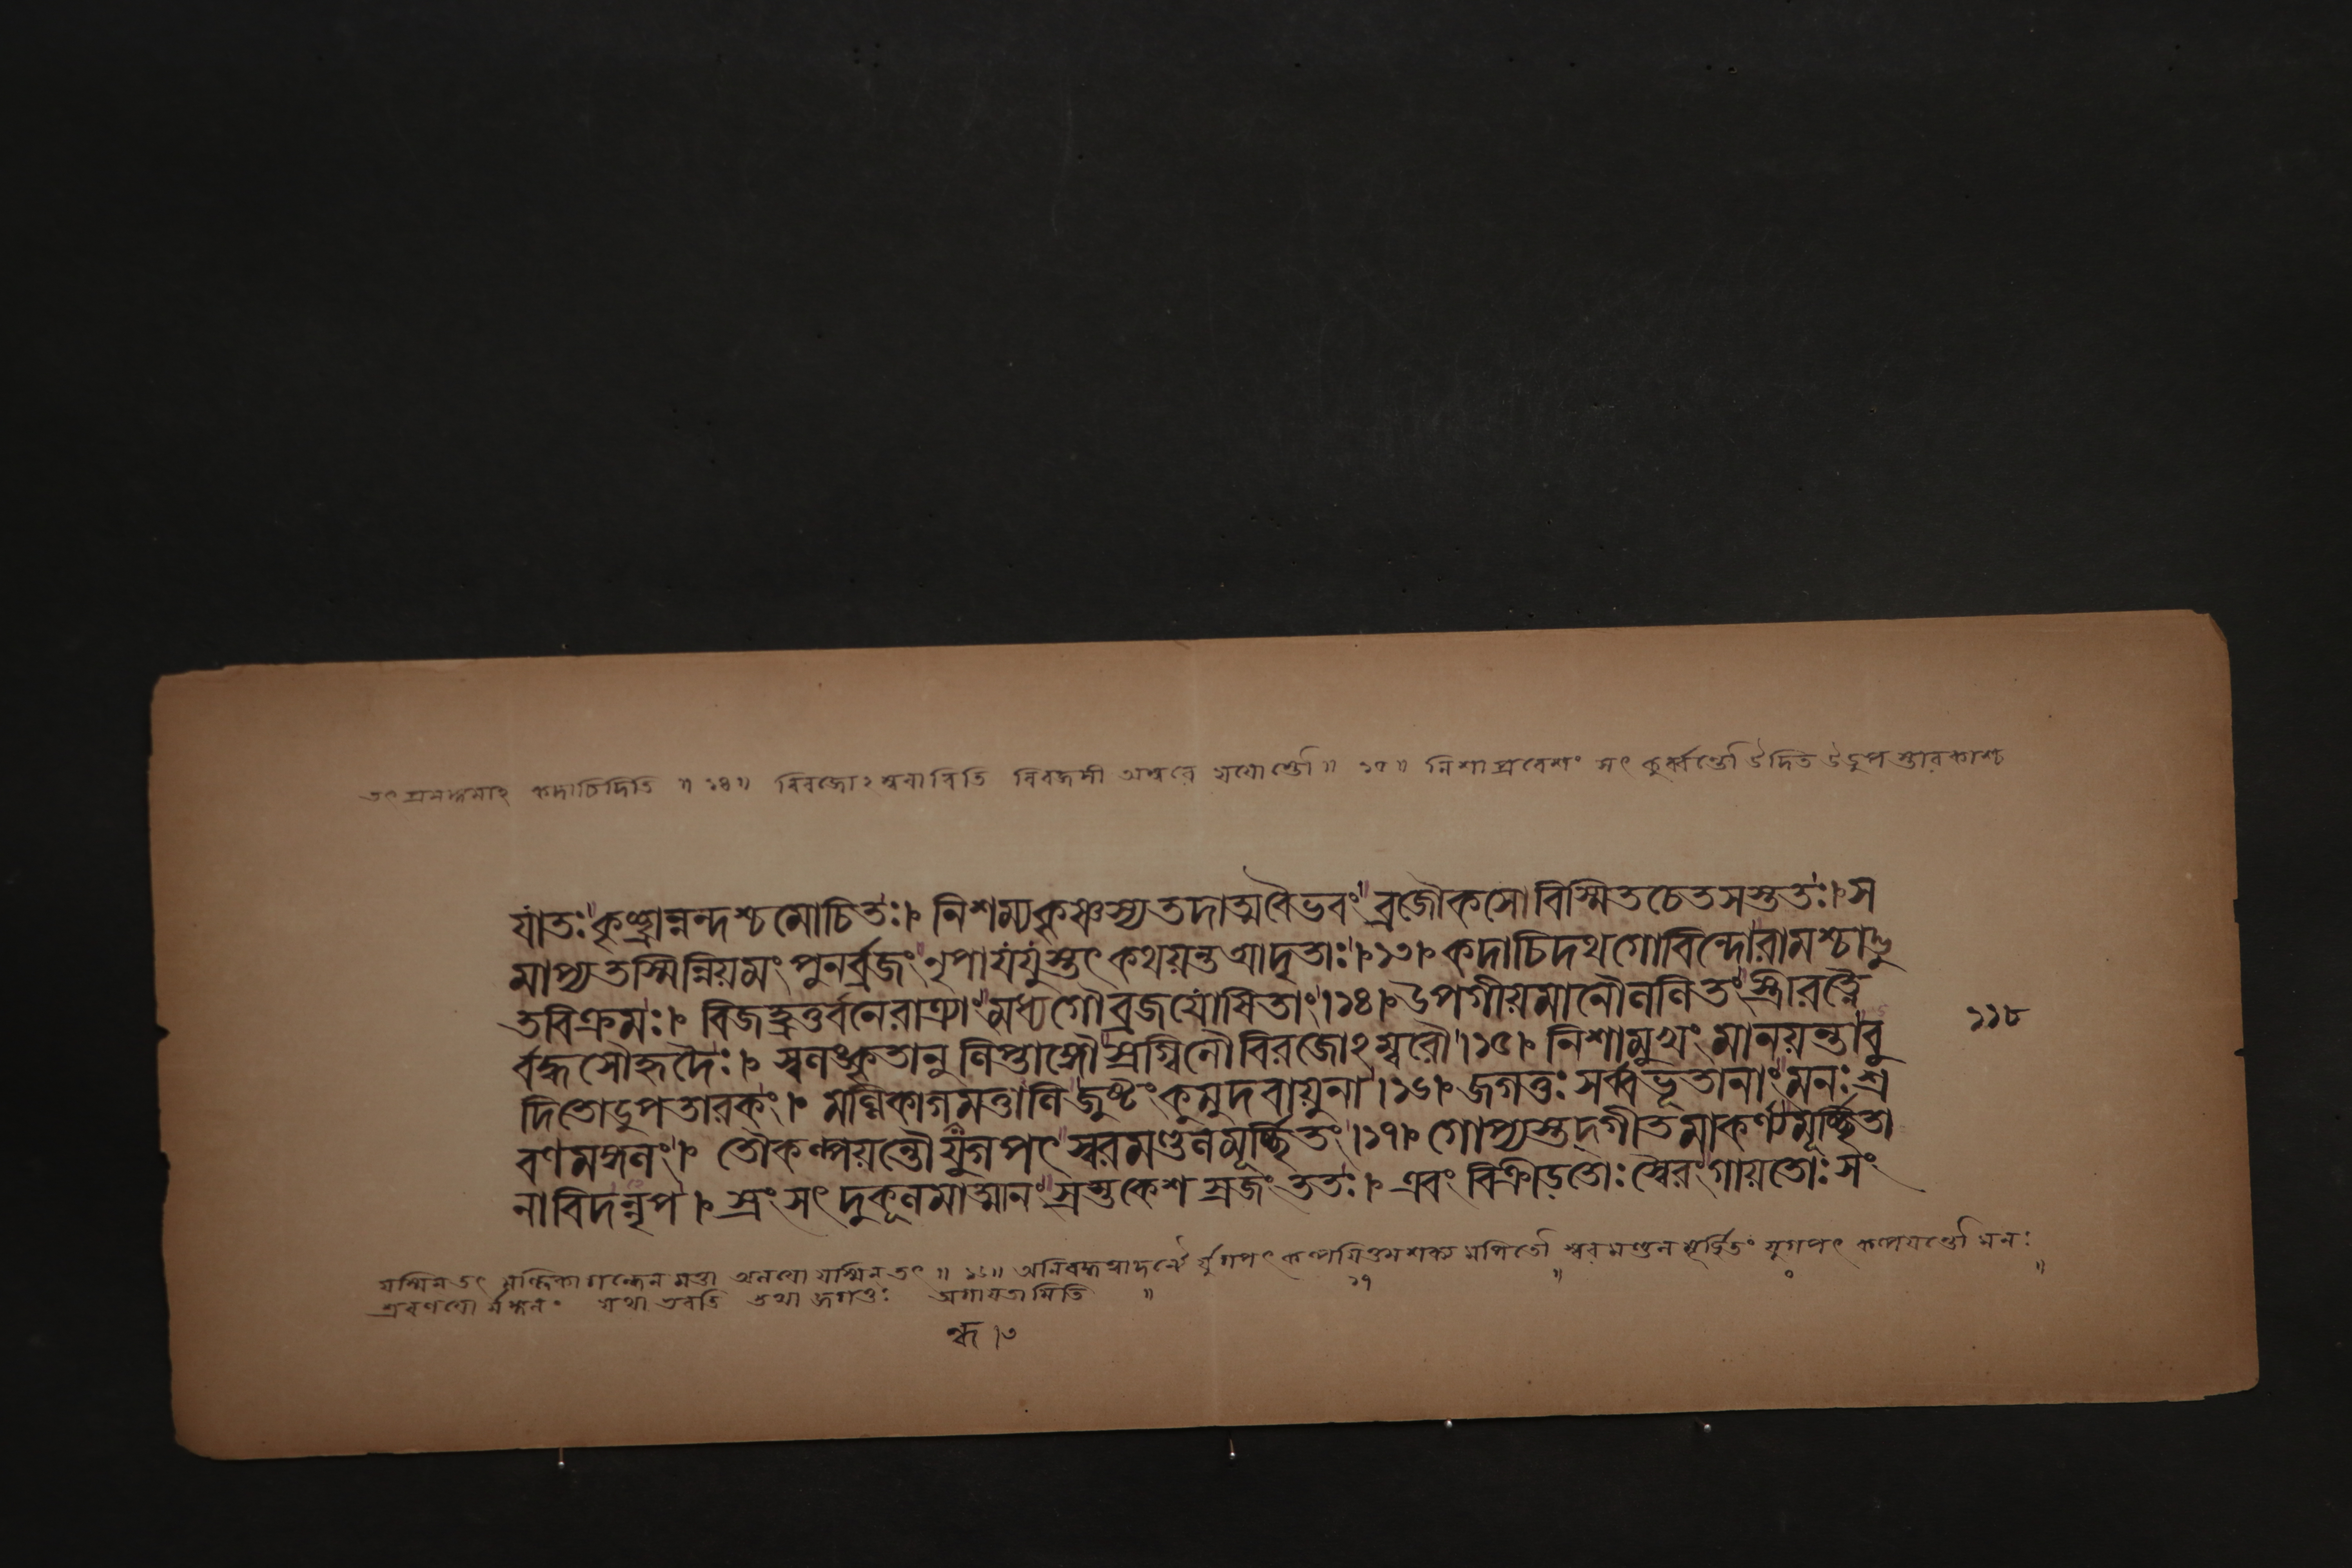 তৎপ্রসঙ্গমাহ কদাচিদিতি ॥ ১৪ ॥ বিরজোঽম্বরাবিতি বিরজসী অম্বরে যয়োস্তৌ ॥ ১৫ ॥ নিশাপ্রবেশং সৎ কুর্ব্বন্তৌ উদিত উডুপস্তারকাশ্চ
যাতঃ কৃষ্ণান্নন্দশ্চ মোচিতঃ। নিশম্য কৃষ্ণস্য তদাত্মবৈভবং ব্রজৌকসো বিস্মিতচেতসস্ততঃ। স
মাপ্য তস্মিন্নিয়মং পুনর্ব্রজং নৃপাযযুস্তৎ কথয়ন্ত আদৃতাঃ।১৩। কদাচিদথ গোবিন্দো রামশ্চাদ্ভু
তবিক্রমঃ। বিজহ্রতুর্বনে রাত্র্যাং মধ্যগৌ ব্রজযোষিতাং।১৪। উপগীয়মানৌ ললিতং স্ত্রীরত্নৈ
র্বদ্ধসৌহৃদৈঃ। স্বলঙ্কৃতানুলিপ্তাঙ্গৌ স্রগ্বিনৌ বিরজোঽম্বরৌ।১৫। নিশামুখং মানয়ন্তাবু
দিতোডুপতারকং। মল্লিকাগমত্তালিজুষ্টং কুমুদবায়ুনা।১৬। জগতুঃ সর্ব্বভূতানাং মনঃশ্র
বণমঙ্গলং। তৌ কল্পয়ন্তৌ যুগপৎ স্বরমণ্ডলমূর্চ্ছিতং।১৭। গোপ্যস্তদ্গীতমাকর্ণ্য মূর্চ্ছিতা
নাবিদন্নৃপ। স্রংসৎ দুকূলমাত্মানং স্রস্তকেশস্রজং ততঃ। এবং বিক্রীড়তোঃ স্বৈরং গায়তোঃ সং
১১৮
যস্মিন্ তৎ মল্লিকাগন্ধেন মত্তা অলয়ো যস্মিন্ তৎ ॥ ১৬॥ র্যুগপৎ কল্পয়িতুমশক্যমপি তৌ স্বরমণ্ডলমূর্চ্ছিতং যুগপৎ কল্পয়ন্তৌ মনঃ
শ্রবণয়ো র্মঙ্গলং যথা ভবতি তথা জগতুঃ অগায়তামিতি ॥ ১৭ ॥